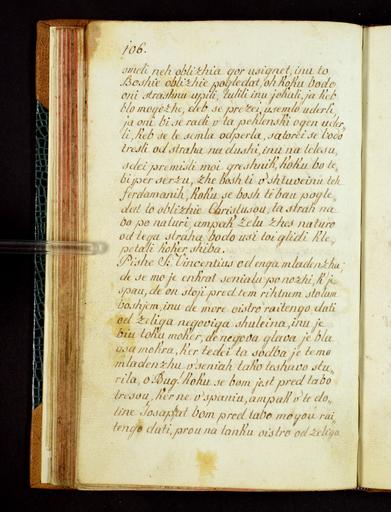 106.
smeli neh oblizhia gor usignet, inu to
Boshie oblizhie pogledat, oh koku bodo
oni strashnu upili, zulili inu jokali, ja keb
blo mogozhe, deb se prezei usemlo uderli,
ja oni bi se radi v ta peklenski ogen uder-
li, keb se le semla odperla, satorei se bodo
tresli od straha na dushi, inu na telesu,
sdei premisli moi greshnik, koku bo te-
bi per serzu, zhe bosh ti v' shtuveinu teh
ferdamanih, koku se bosh ti bau pogle-
dat to oblizhie Christusou, ta strah na
bo po naturi, ampak zelu zhes naturo
od tega straha bodo usi toi glidi kle-
petali koker shiba.
Pishe S. Vincentius od enga mladenzhu,
de se mo je enkrat senialu po nozhi, k' je
spau, de on stoji pred tem rihtnem stolam
boshjem, inu de more oistro raitengo dati
od zeliga negoviga shuleina, inu je
biu toku moker, de negova glava je bla
usa mokra, ker tedei ta sodba je temo
mladenzhu v' seniah tako teshavo stu-
rila, o Bug! koku se bom jest pred tabo
tresou, ker ne v' spaniu, ampak v' te do-
line Josaphat bom pred tabo mogou rai-
tengo dati, prou na tanku oistro od zeliga